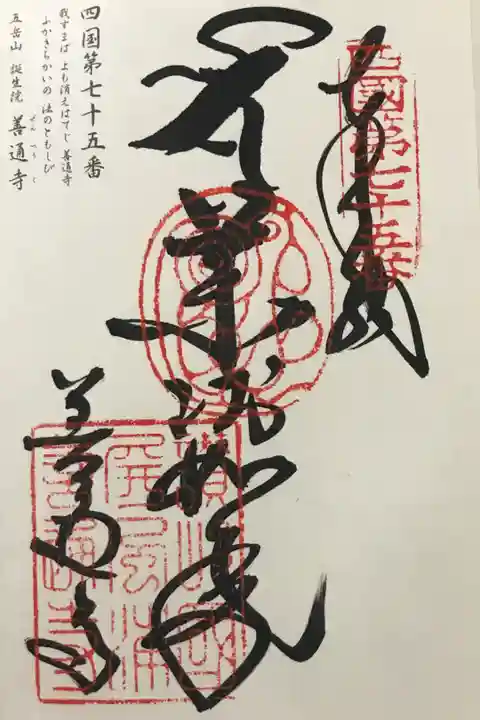 四国第七十五番
我すまば よも消えはてじ 善通寺
ふかきちかいの 法のともしび
五岳山 誕生院 善通寺
ぜんつうじ
奉納
四國第七十五番
薬師如来
善通寺